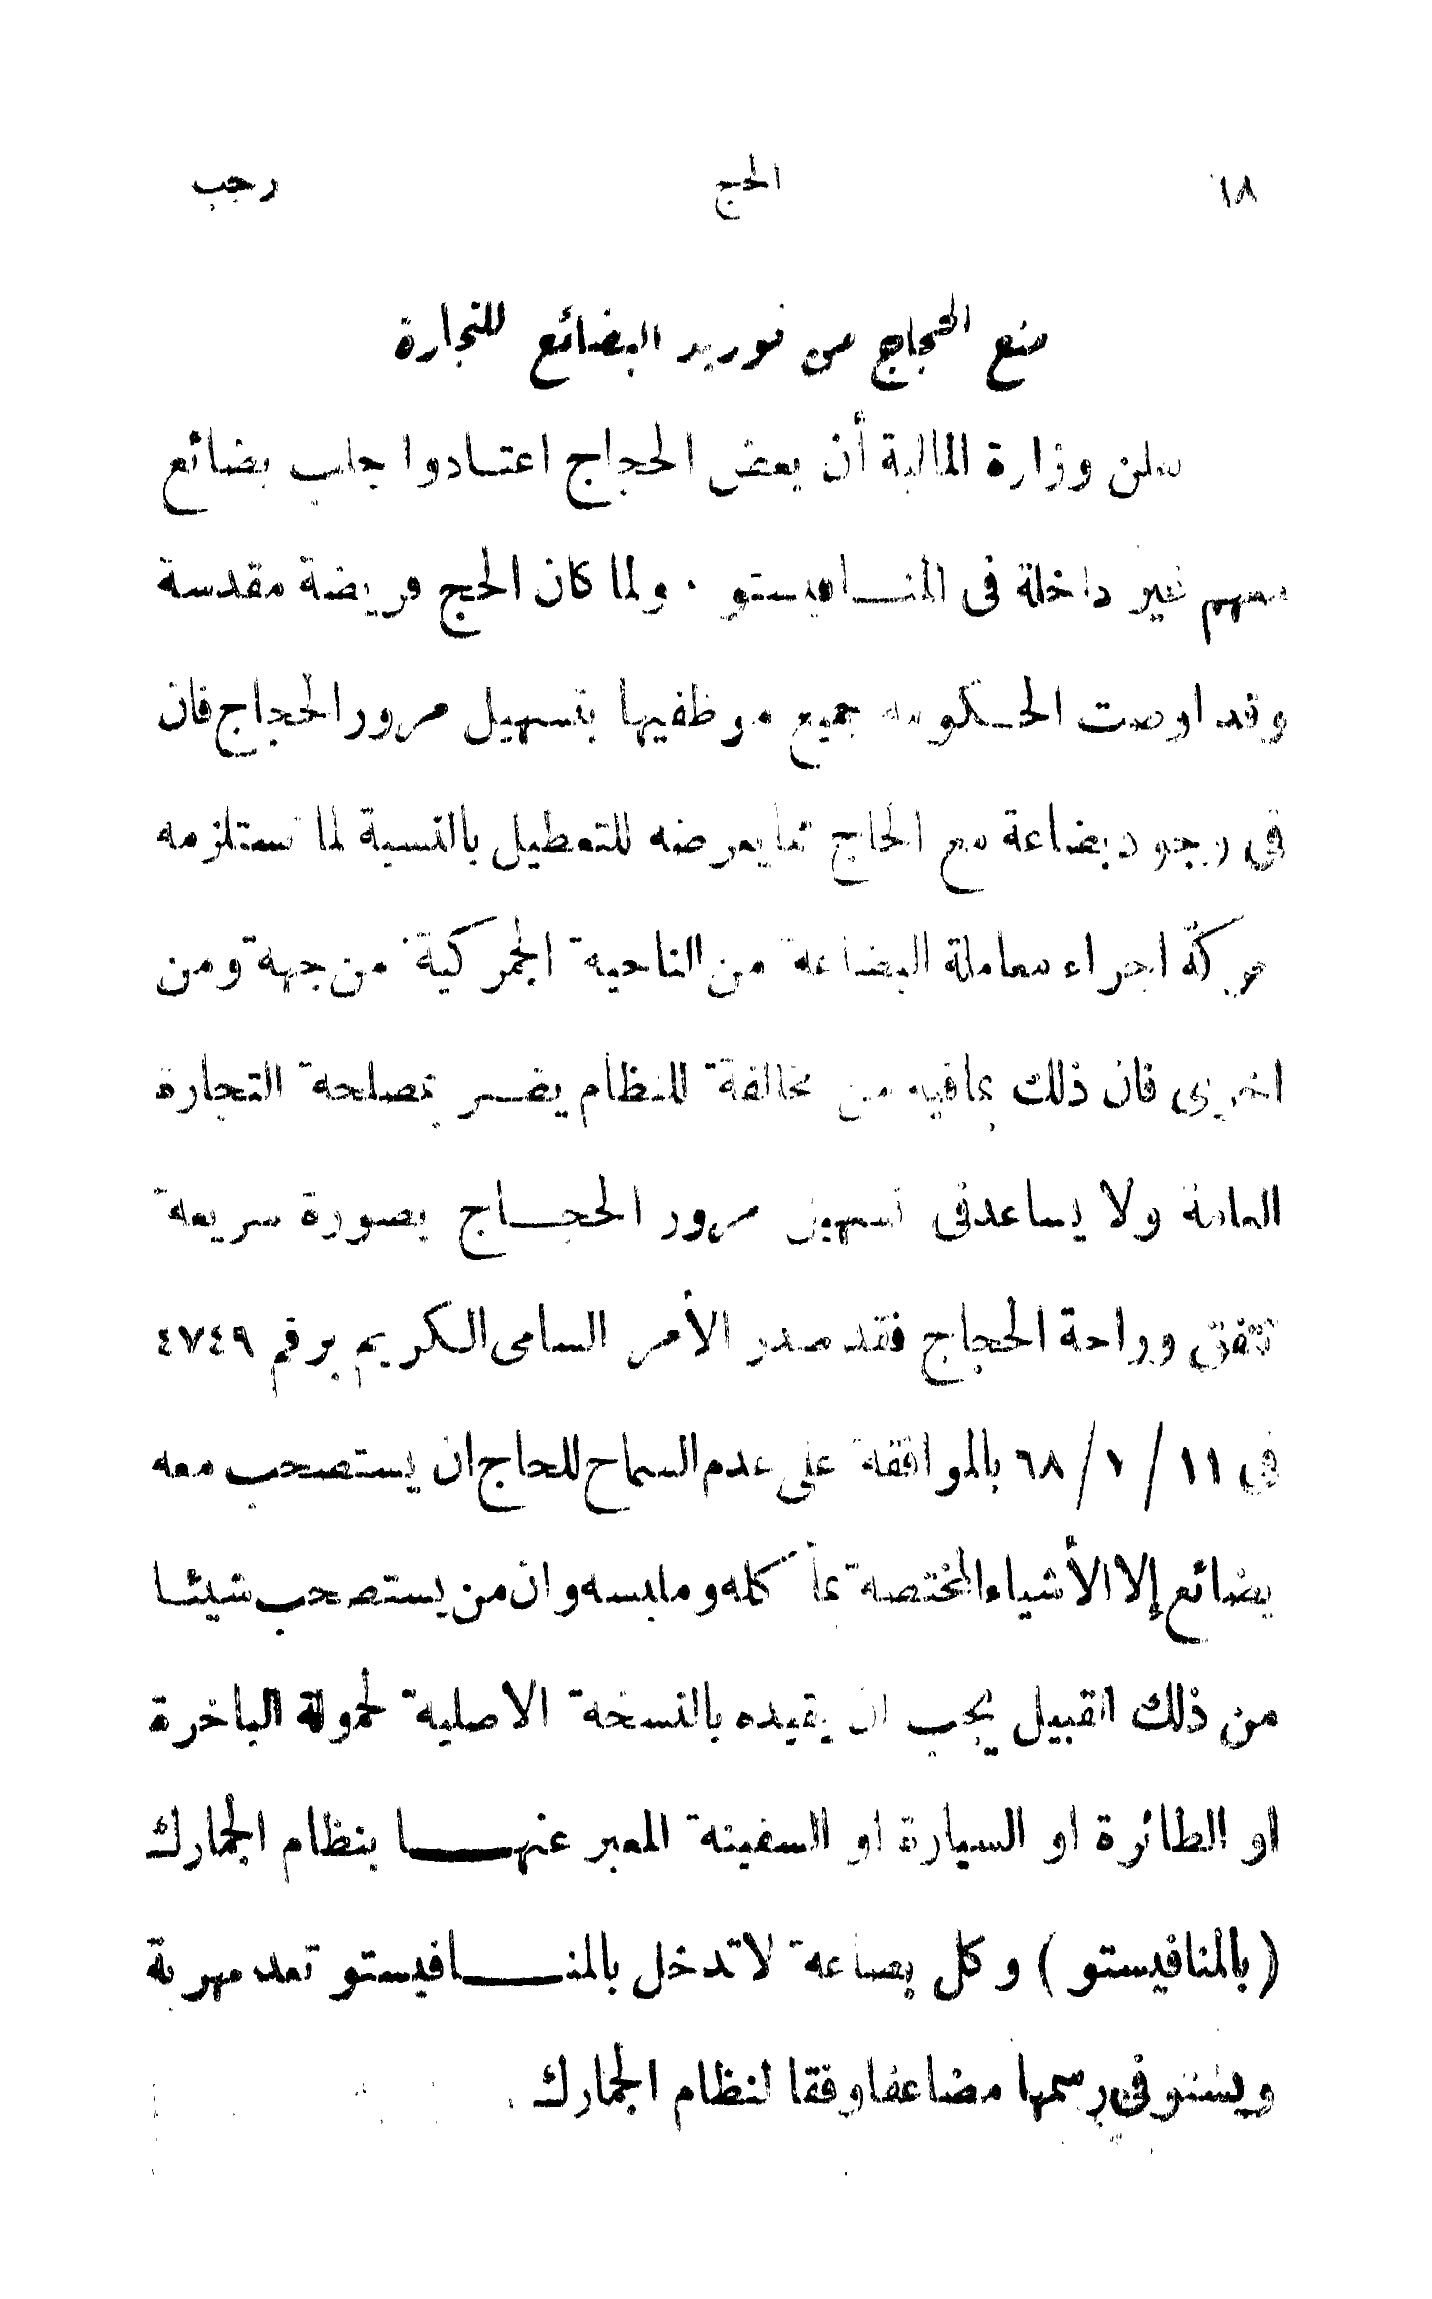 ٦٨ الحج رجب
منع الحجاج من توريد البضائع للتجارة
تعلن وزارة المالية أن بعض الحجاج اعتادوا جلب بضائع
معهم غير داخلة فى المنافيستو . ولما كان الحج فريضة مقدسة
وقد اوصت الحكومة جميع موظفيها بتسهيل مرور الحجاج فان
فى وجود بضاعة مع الحاج مما يعرضه للتعطيل بالنسبة لما تستلزمه
حركة اجراء معاملة البضاعة من الناحية الجمركية من جهة ومن
اخرى فان ذلك بمافيه من مخالفة للنظام يضر بمصلحة التجارة
العامة ولا يساعد فى تسهيل مرور الحجاج بصورة سريعة
تتفق وراحة الحجاج فقد صدر الأمر السامى الكريم برقم ٤٧٤٩
فى ١١ / ١ / ٦٨ بالموافقة على عدم السماح للحاج ان يستصحب معه
بضائع إلا الأشياء المختصة بمأكله وملبسه وان من يستصحب شيئا
من ذلك القبيل يجب ان يقيده بالنسخة الاصلية لحمولة الباخرة
او الطائرة او السيارة او السفينة المعبر عنها بنظام الجمارك
( بالمنافيستو ) وكل بضاعة لاتدخل بالمنافيستو تعد مهربة
ويستوفى رسمها مضاعفا وفقا لنظام الجمارك .